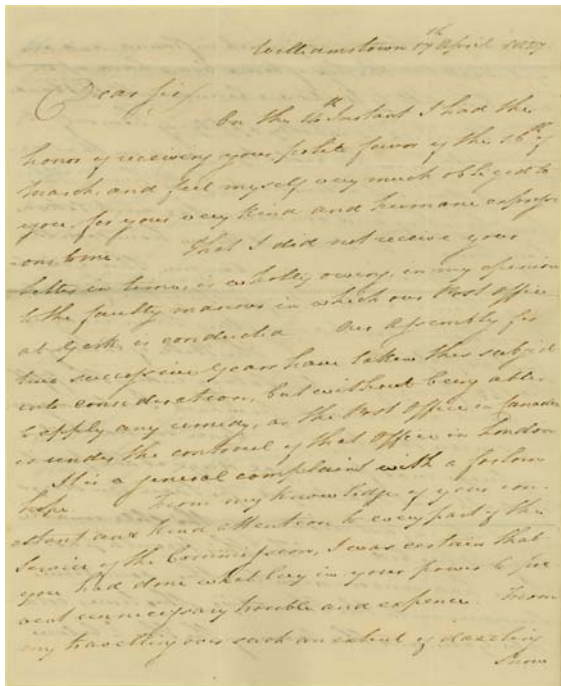 Williamstown 17th April 1827
Dear Sir
On the 14th Instant I had the
honor of receiving your polite favor of the 16th of
March and feel myself very much obliged to
you for your very kind and humane express
-ions to me. That I did not receive your
letter in time, is wholly owing, in my opinion
to the faulty manner in which our Post Office
at York is conducted Our Assembly for
two successive years have taken this subject
into consideration, but without being able
to apply any remedy, as the Post Office in Canada
is under the controul of that Office in London
It is a general complaint with a forlorn
hope. From my knowledge of your con
-stant and kind attention to every part of the
Service of the Commission, I was certain that
you had done what lay in your power to pre
vent unnecessary trouble and expence. From
my travelling over such an extent of dazzling
Snow